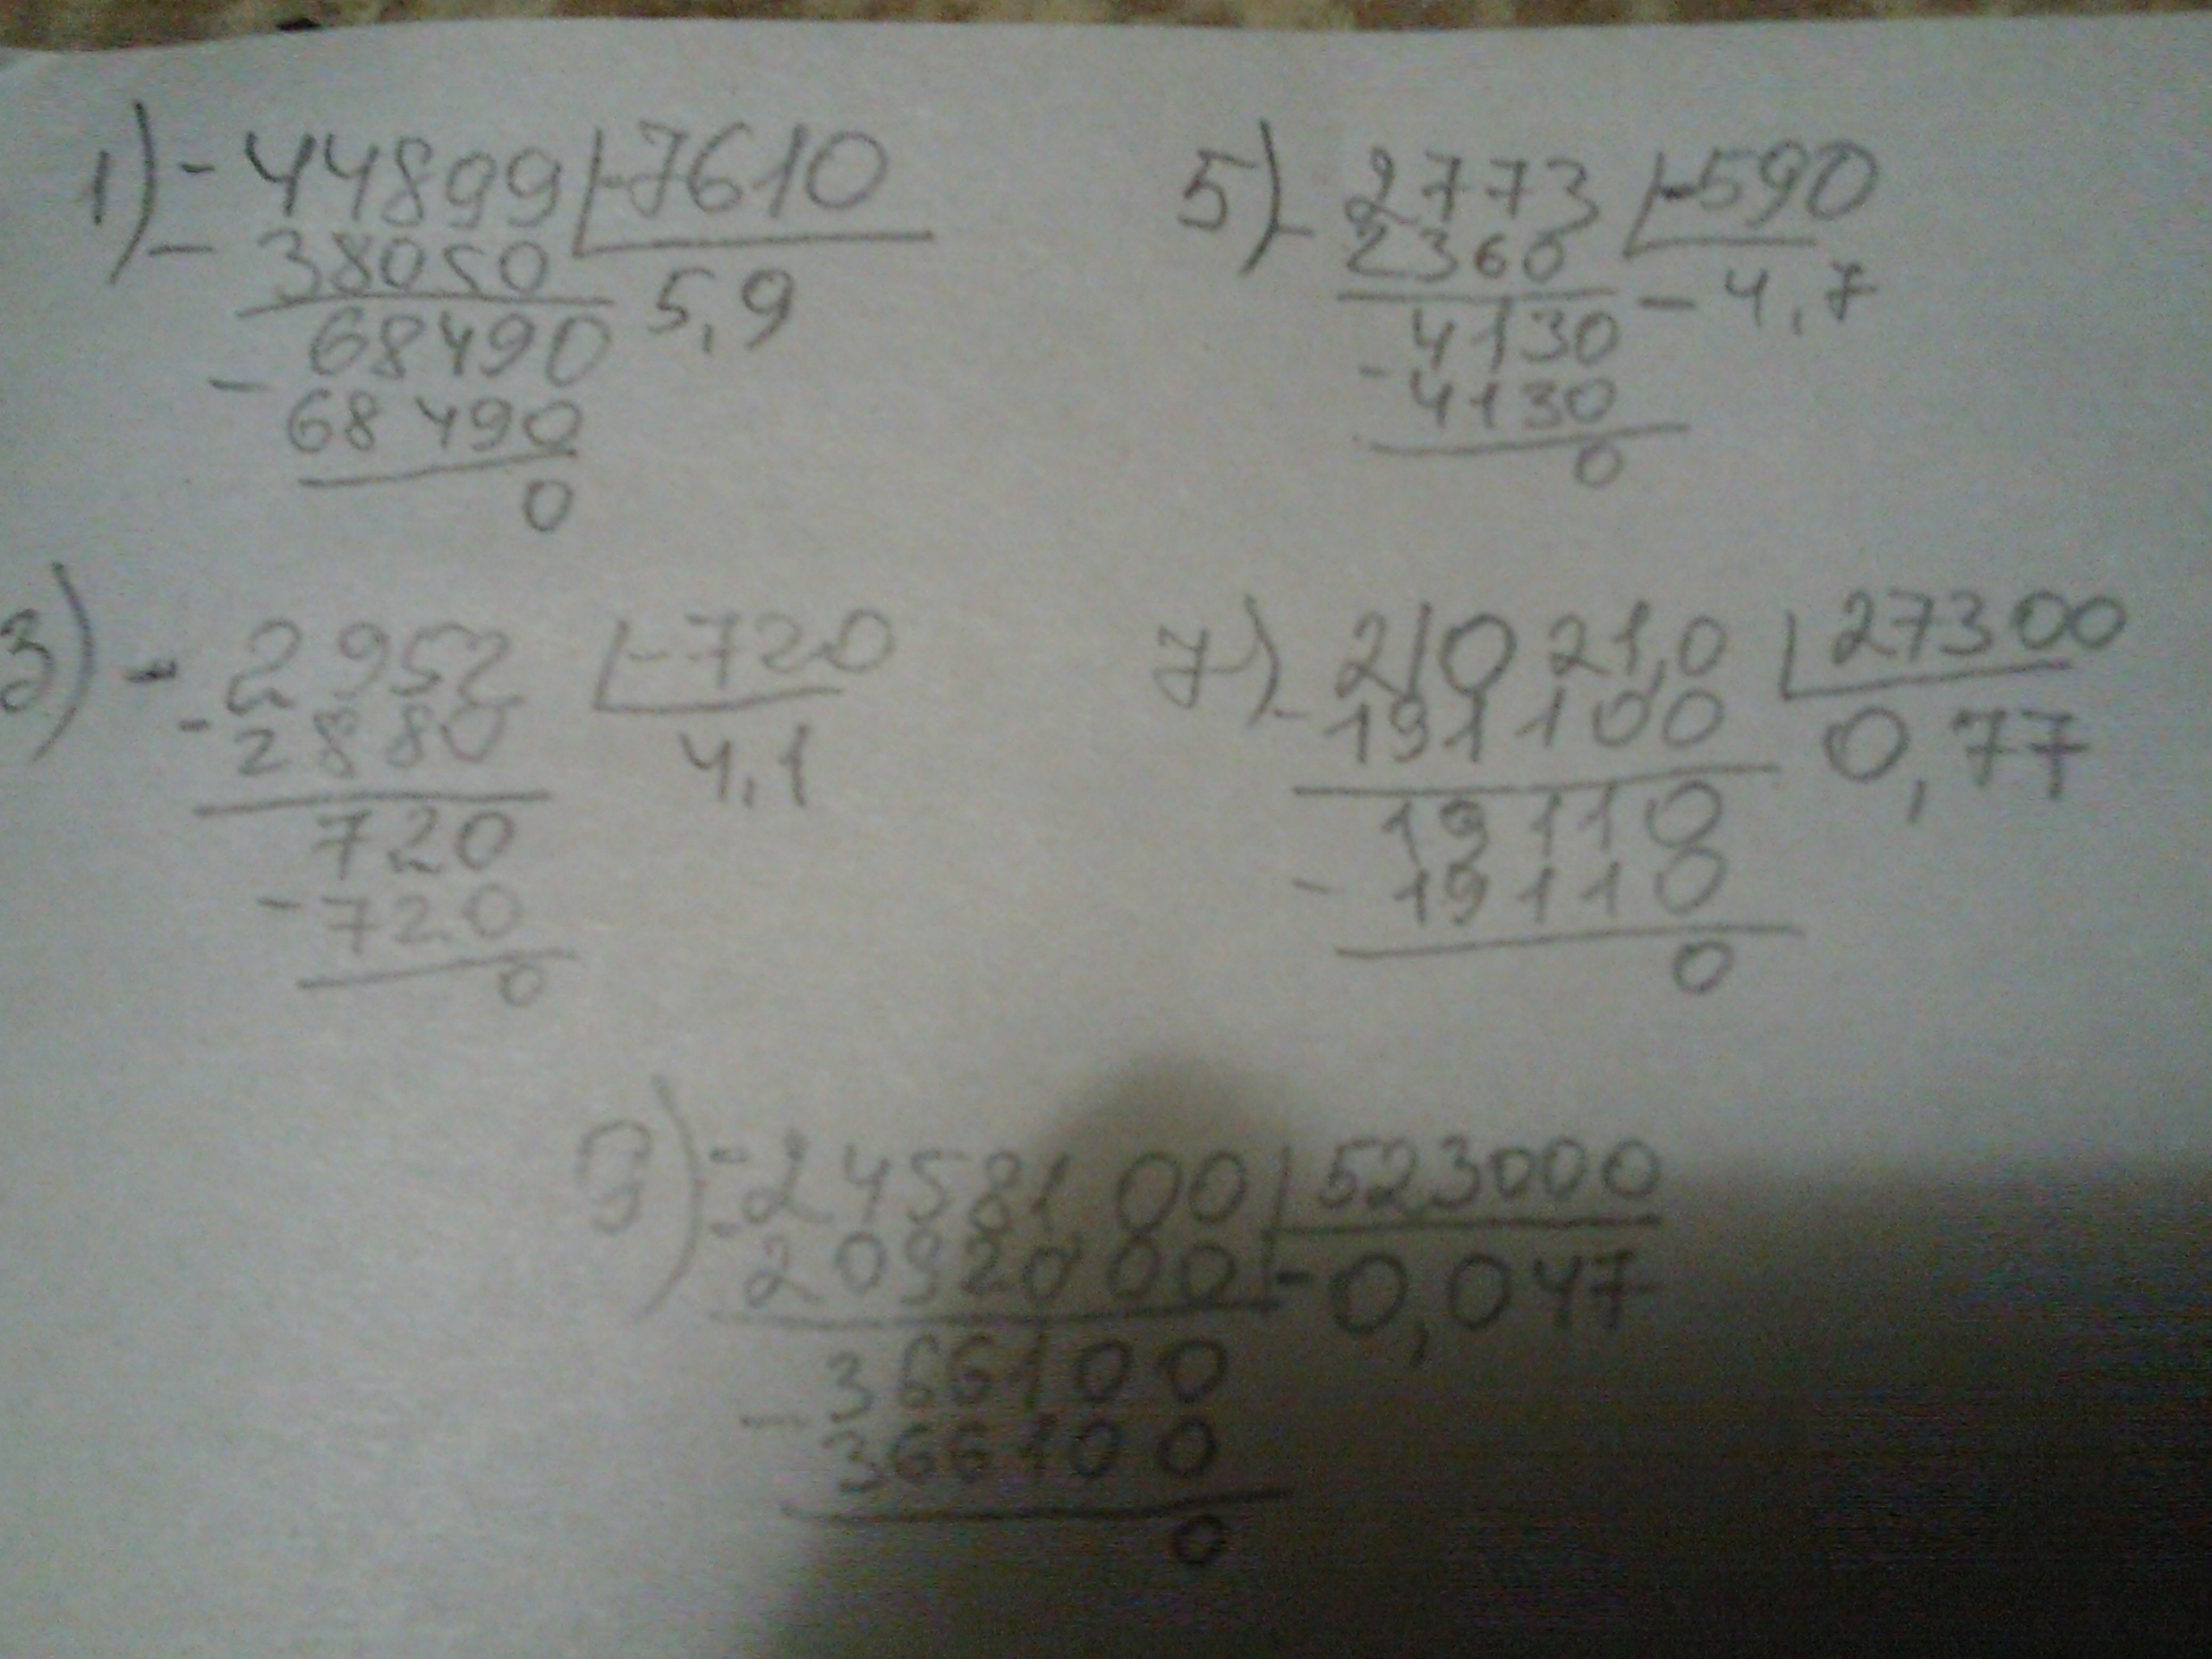 1) - 44899 | -7610
- 38050 5,9
68490
- 68490
0
5) - 2773 | -590
2360 - 4,7
4130
- 4130
0
3) - 2952 | -720
- 2880 4,1
720
- 720
0
7) - 21021,0 | 27300
191100 0,77
19110
- 19110
0
9) - 24581,00 | 523000
- 2092000 - 0,047
366100
- 366100
0